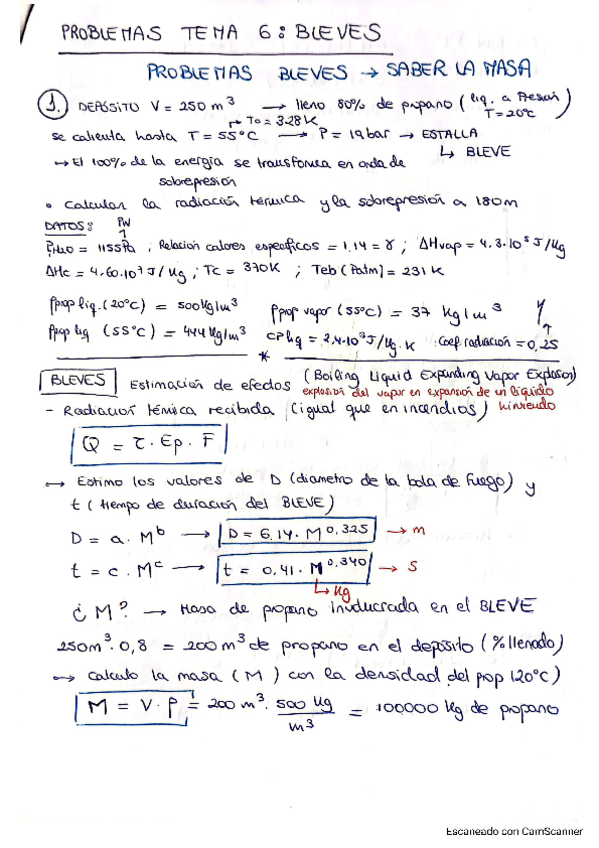 PROBLEMAS TEMA 6: BLEVES
PROBLEMAS BLEVES → SABER LA MASA
1. DEPÓSITO V = 250 m³ → lleno 80% de propano (liq. a Presión)
T = 20ºC
→ To = 328K
se calienta hasta T = 55ºC → P = 19 bar → ESTALLA
↳ BLEVE
→ El 100% de la energía se transforma en onda de
sobrepresión
• Calcular la radiación térmica y la sobrepresión a 180m
DATOS: Pw
PH2O = 1155Pa ; Relacion calores especificos = 1,14 = γ ; ΔHvap = 4,3·10⁵ J/Kg
ΔHc = 4,60·10⁷ J/Kg ; Tc = 370K ; Teb (Patm) = 231 K
ρprop liq. (20ºC) = 500Kg/m³ ρprop vapor (55ºC) = 37 Kg/m³ η
ρprop liq (55ºC) = 444Kg/m³ CP liq = 2,4·10³J/Kg·K Coef. radiación = 0,25
*
BLEVES Estimación de efectos (Boiling Liquid Expanding Vapor Explosion)
explosión del vapor en expansión de un líquido
- Radiación térmica recibida (igual que en incendios) hirviendo
Q = τ · Ep · F
→ Estimo los valores de D (diametro de la bola de fuego) y
t (tiempo de duración del BLEVE)
D = a · Mᵇ → D = 6,14 · M^0,325 → m
t = c · Mᶜ → t = 0,41 · M^0,340 → s
↳ Kg
¿M? → Masa de propano involucrada en el BLEVE
250m³ · 0,8 = 200 m³ de propano en el depósito (% llenado)
→ Calculo la masa (M) con la densidad del prop (20ºC)
M = V · ρ = 200 m³ · 500 Kg/m³ = 100000 Kg de propano
Escaneado con CamScanner